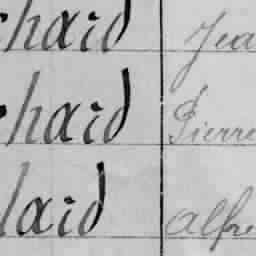 chaid Jea
chaid Pierre
laid alfre